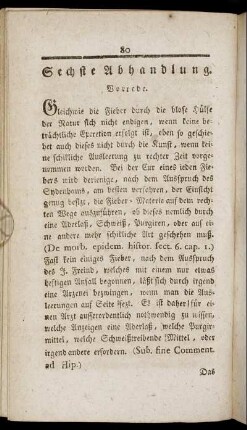 80
Sechste Abhandlung.
Vorrede.
Gleichwie die Fieber durch die bloße Hülfe
der Natur sich nicht endigen, wenn keine be-
trächtliche Excretion erfolgt ist, eben so geschie-
het auch dieses nicht durch die Kunst, wenn kei-
ne schikliche Ausleerung zu rechter Zeit vorge-
nommen worden. Bei der Cur eines ieden Fie-
bers wird derienige, nach dem Ausspruch des
Sydenhams, am besten verfahren, der Einsicht
genug besizt, die Fieber-Materie auf dem rech-
ten Wege auszuführen, ob dieses nemlich durch
eine Aderlaß, Schweiß, Purgiren, oder auf ei-
ne andere mehr schikliche Art geschehen muß.
(De morb. epidem. histor. sect. 6. cap. 1.)
Fast kein einiges Fieber, nach dem Ausspruch
des J. Freind, welches mit einem nur etwas
heftigen Anfall begonnen, läßt sich durch irgend
eine Arznei bezwingen, wenn man die Aus-
leerungen auf Seite sezt. Es ist daher für ei-
nen Arzt ausserordentlich nothwendig zu wissen,
welche Anzeigen eine Aderlaß, welche Purgir-
mittel, welche Schweißtreibende Mittel, oder
irgend andere erfordern. (Sub. fine Comment.
ad Hip.)
Das